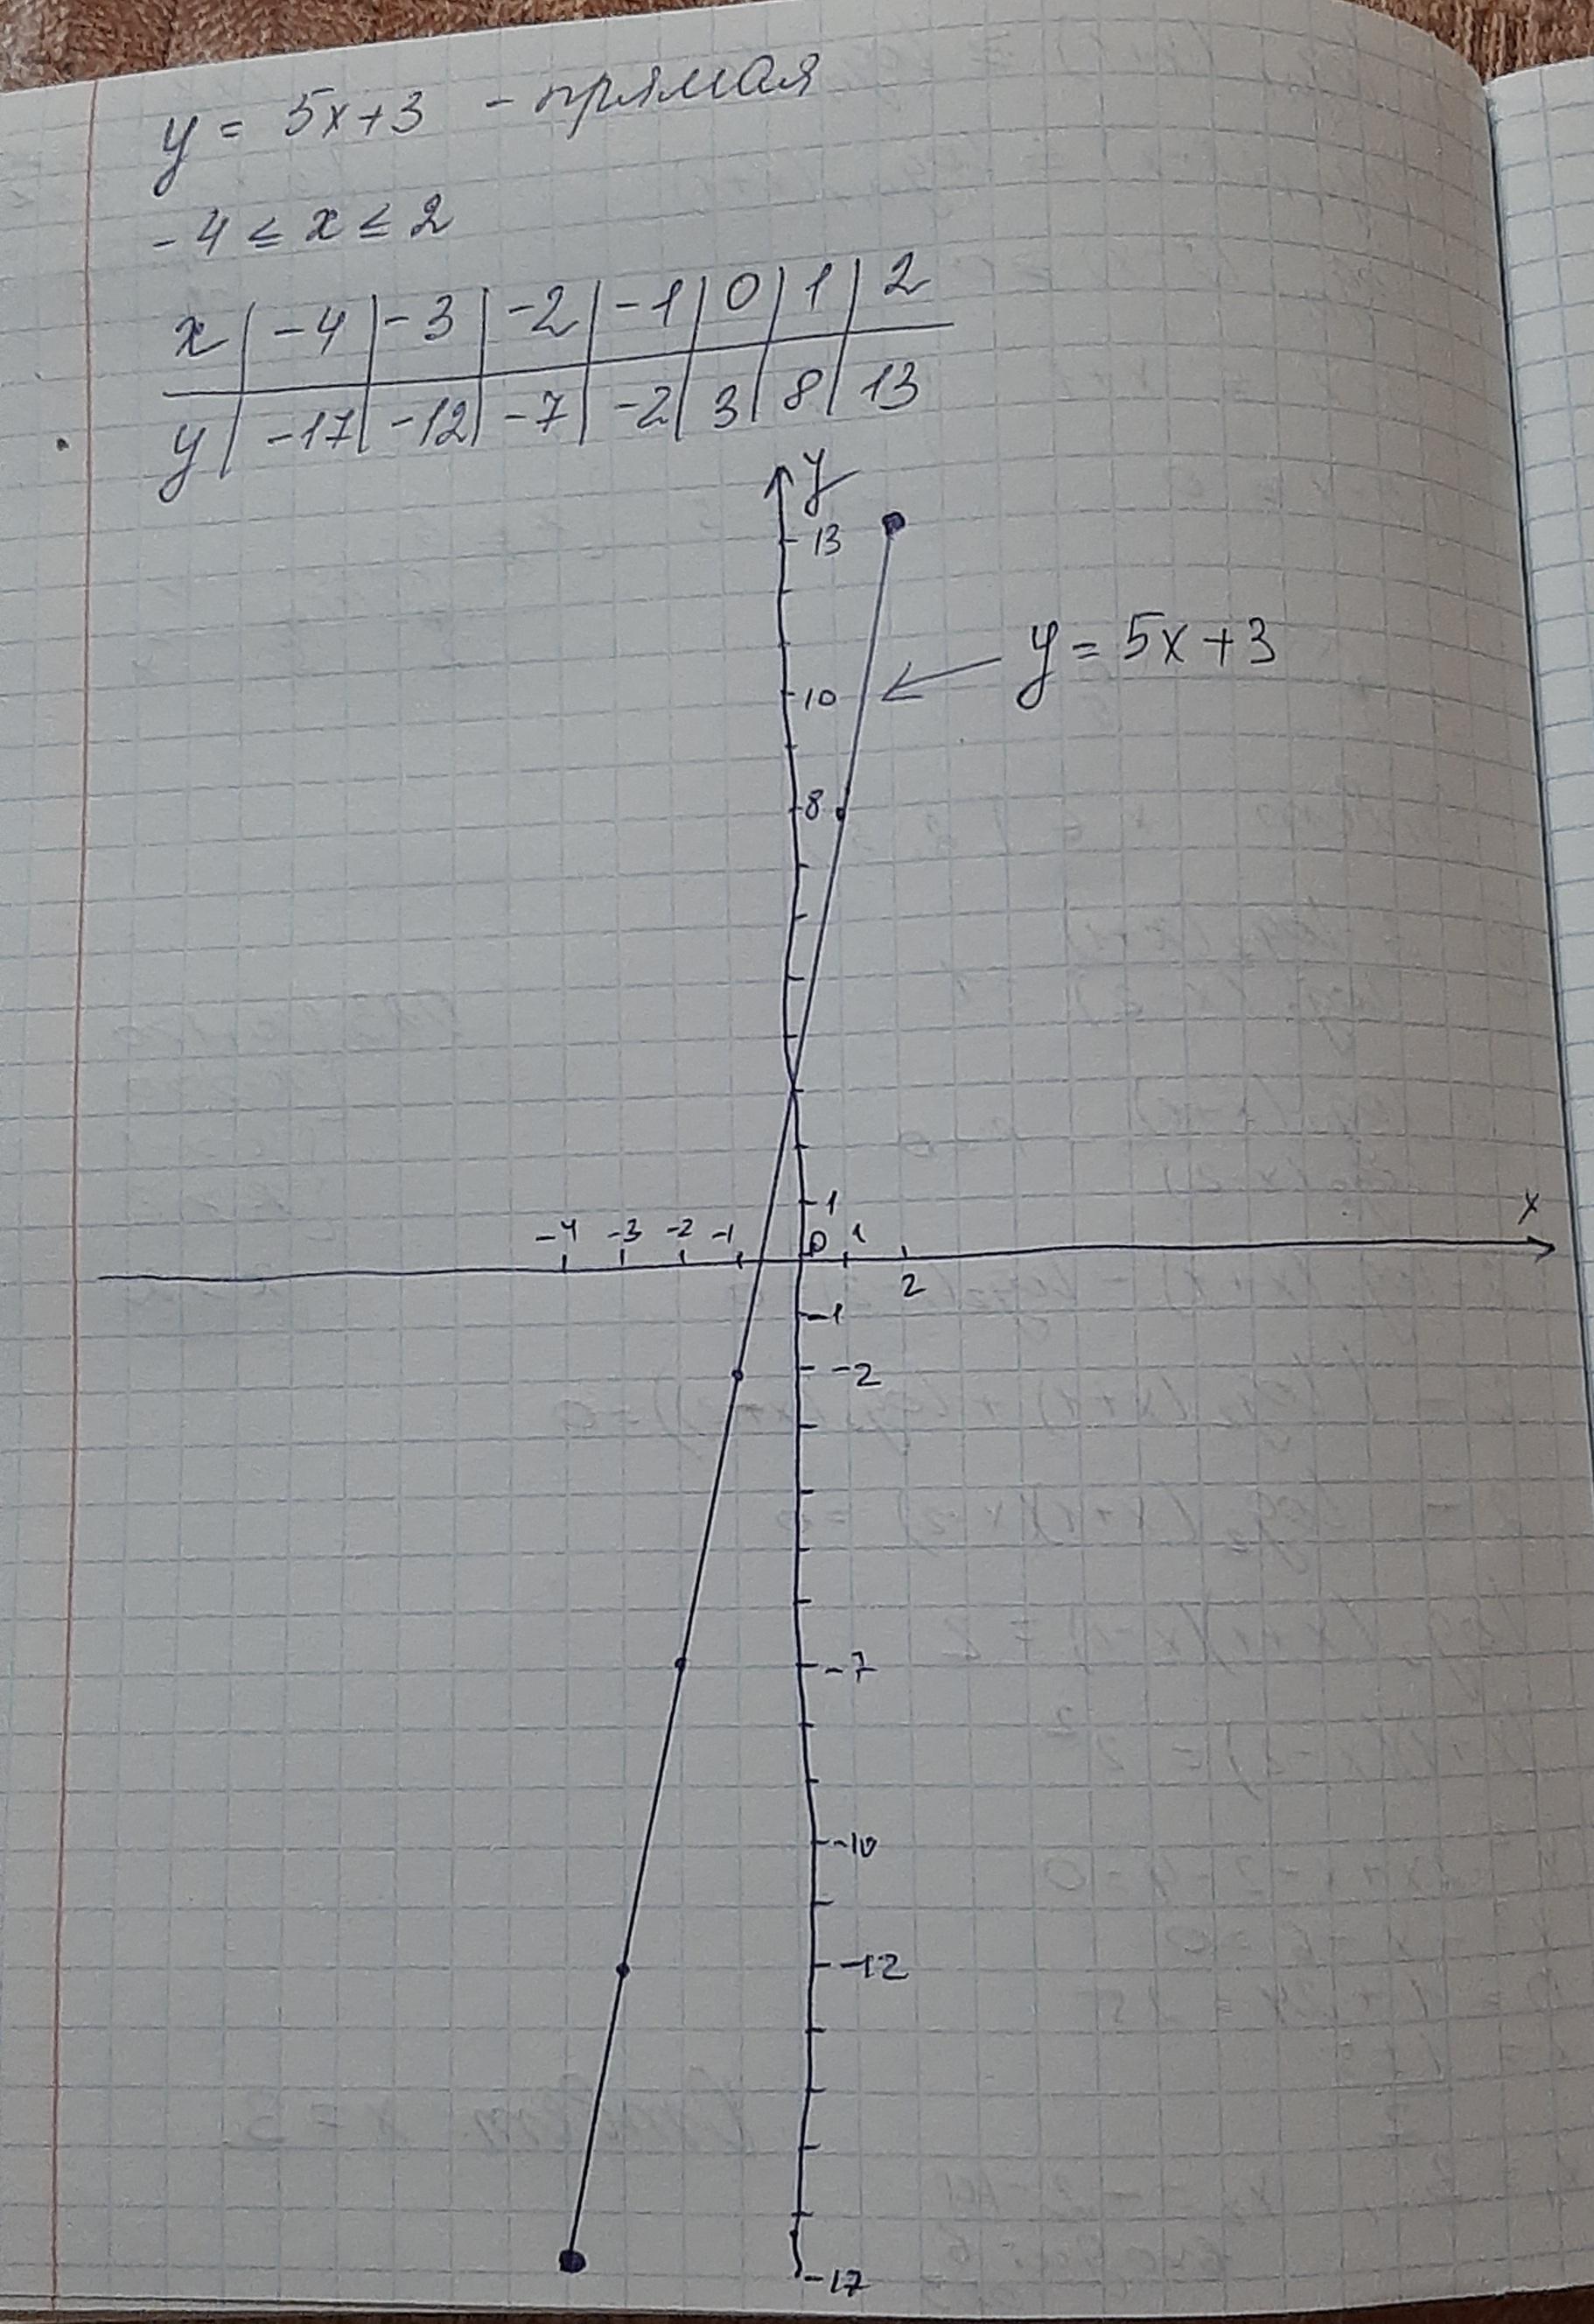 y = 5x+3 - прямая
-4 ≤ x ≤ 2
x | -4 | -3 | -2 | -1 | 0 | 1 | 2
y | -17 | -12 | -7 | -2 | 3 | 8 | 13
y
13
y = 5x+3
10
8
1
x
-4 -3 -2 -1 0 1
2
-1
-2
-7
-10
-12
-17